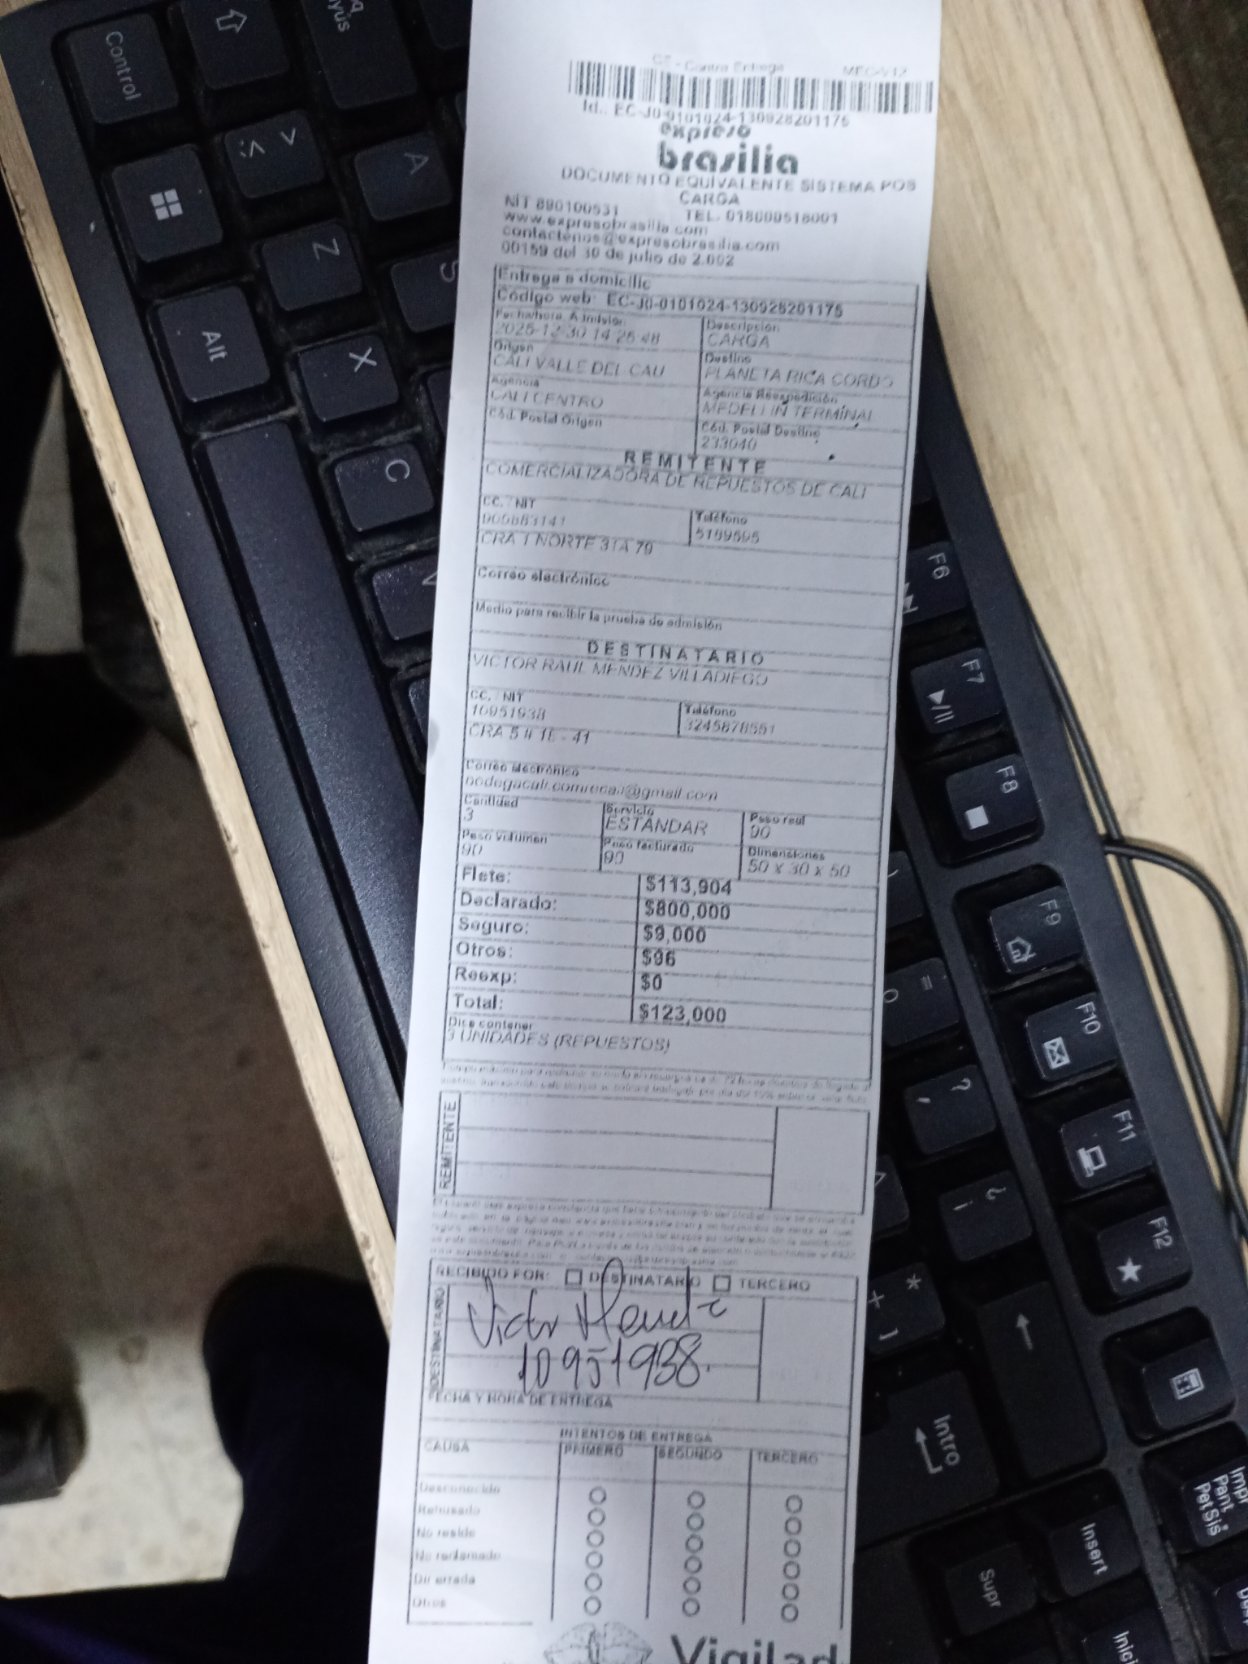 CE - Contra Entrega MEC-V12
Id.: EC-J0-0101024-130928201175
expreso
brasilia
DOCUMENTO EQUIVALENTE SISTEMA POS
CARGA
NIT 890100531 TEL. 018000518001
www.expresobrasilia.com
contactenos@expresobrasilia.com
00159 del 30 de julio de 2.002
Entrega a domicilio
Código web: EC-J0-0101024-130928201175
Fecha/hora Admisión Descripción
2025-12-30 14 26 48 CARGA
Origen Destino
CALI VALLE DEL CAU PLANETA RICA CORDO
Agencia Agencia Reexpedición
CALI CENTRO MEDELLIN TERMINAL
Cód. Postal Origen Cód. Postal Destino
233040
REMITENTE
COMERCIALIZADORA DE REPUESTOS DE CALI
CC. / NIT Teléfono
5199595
CRA 1 NORTE 31A 79
Correo electrónico
Medio para recibir la prueba de admisión
DESTINATARIO
VICTOR RAUL MENDEZ VILLADIEGO
CC. / NIT Teléfono
10951938 3245878551
CRA 5 # 16 - 41
Correo electrónico
bodegacali.comrecali@gmail.com
Cantidad Servicio Peso real
3 ESTANDAR 90
Peso volumen Peso facturado Dimensiones
90 90 50 x 30 x 50
Flete: $113,904
Declarado: $800,000
Seguro: $9,000
Otros: $96
Reexp: $0
Total: $123,000
Dice contener
3 UNIDADES (REPUESTOS)
REMITENTE
RECIBIDO POR: DESTINATARIO TERCERO
DESTINATARIO
Victor Mendez
10951938.
FECHA Y HORA DE ENTREGA
INTENTOS DE ENTREGA
CAUSA PRIMERO SEGUNDO TERCERO
Desconocido
Rehusado
No reside
No reclamado
Dir errada
Otros
Vigilad
Control
Alt
A
Z
S
X
C
F6
F7
F8
F9
F10
F11
F12
Intro
Impr
Pant
PetSis
Insert
Supr
Inici